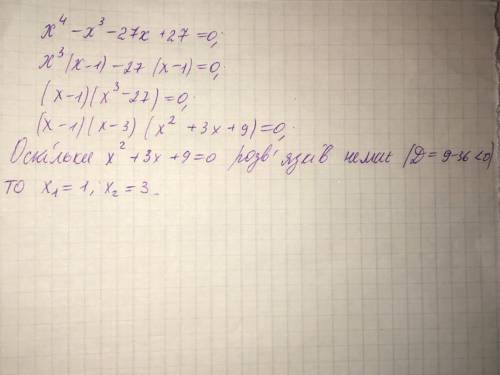 x⁴ - x³ - 27x + 27 = 0;
x³(x-1) - 27(x-1) = 0;
(x-1)(x³-27) = 0;
(x-1)(x-3)(x² + 3x + 9) = 0;
Оскільки x² + 3x + 9 = 0 розв'язків немає (D = 9-36 < 0)
то x₁ = 1; x₂ = 3.